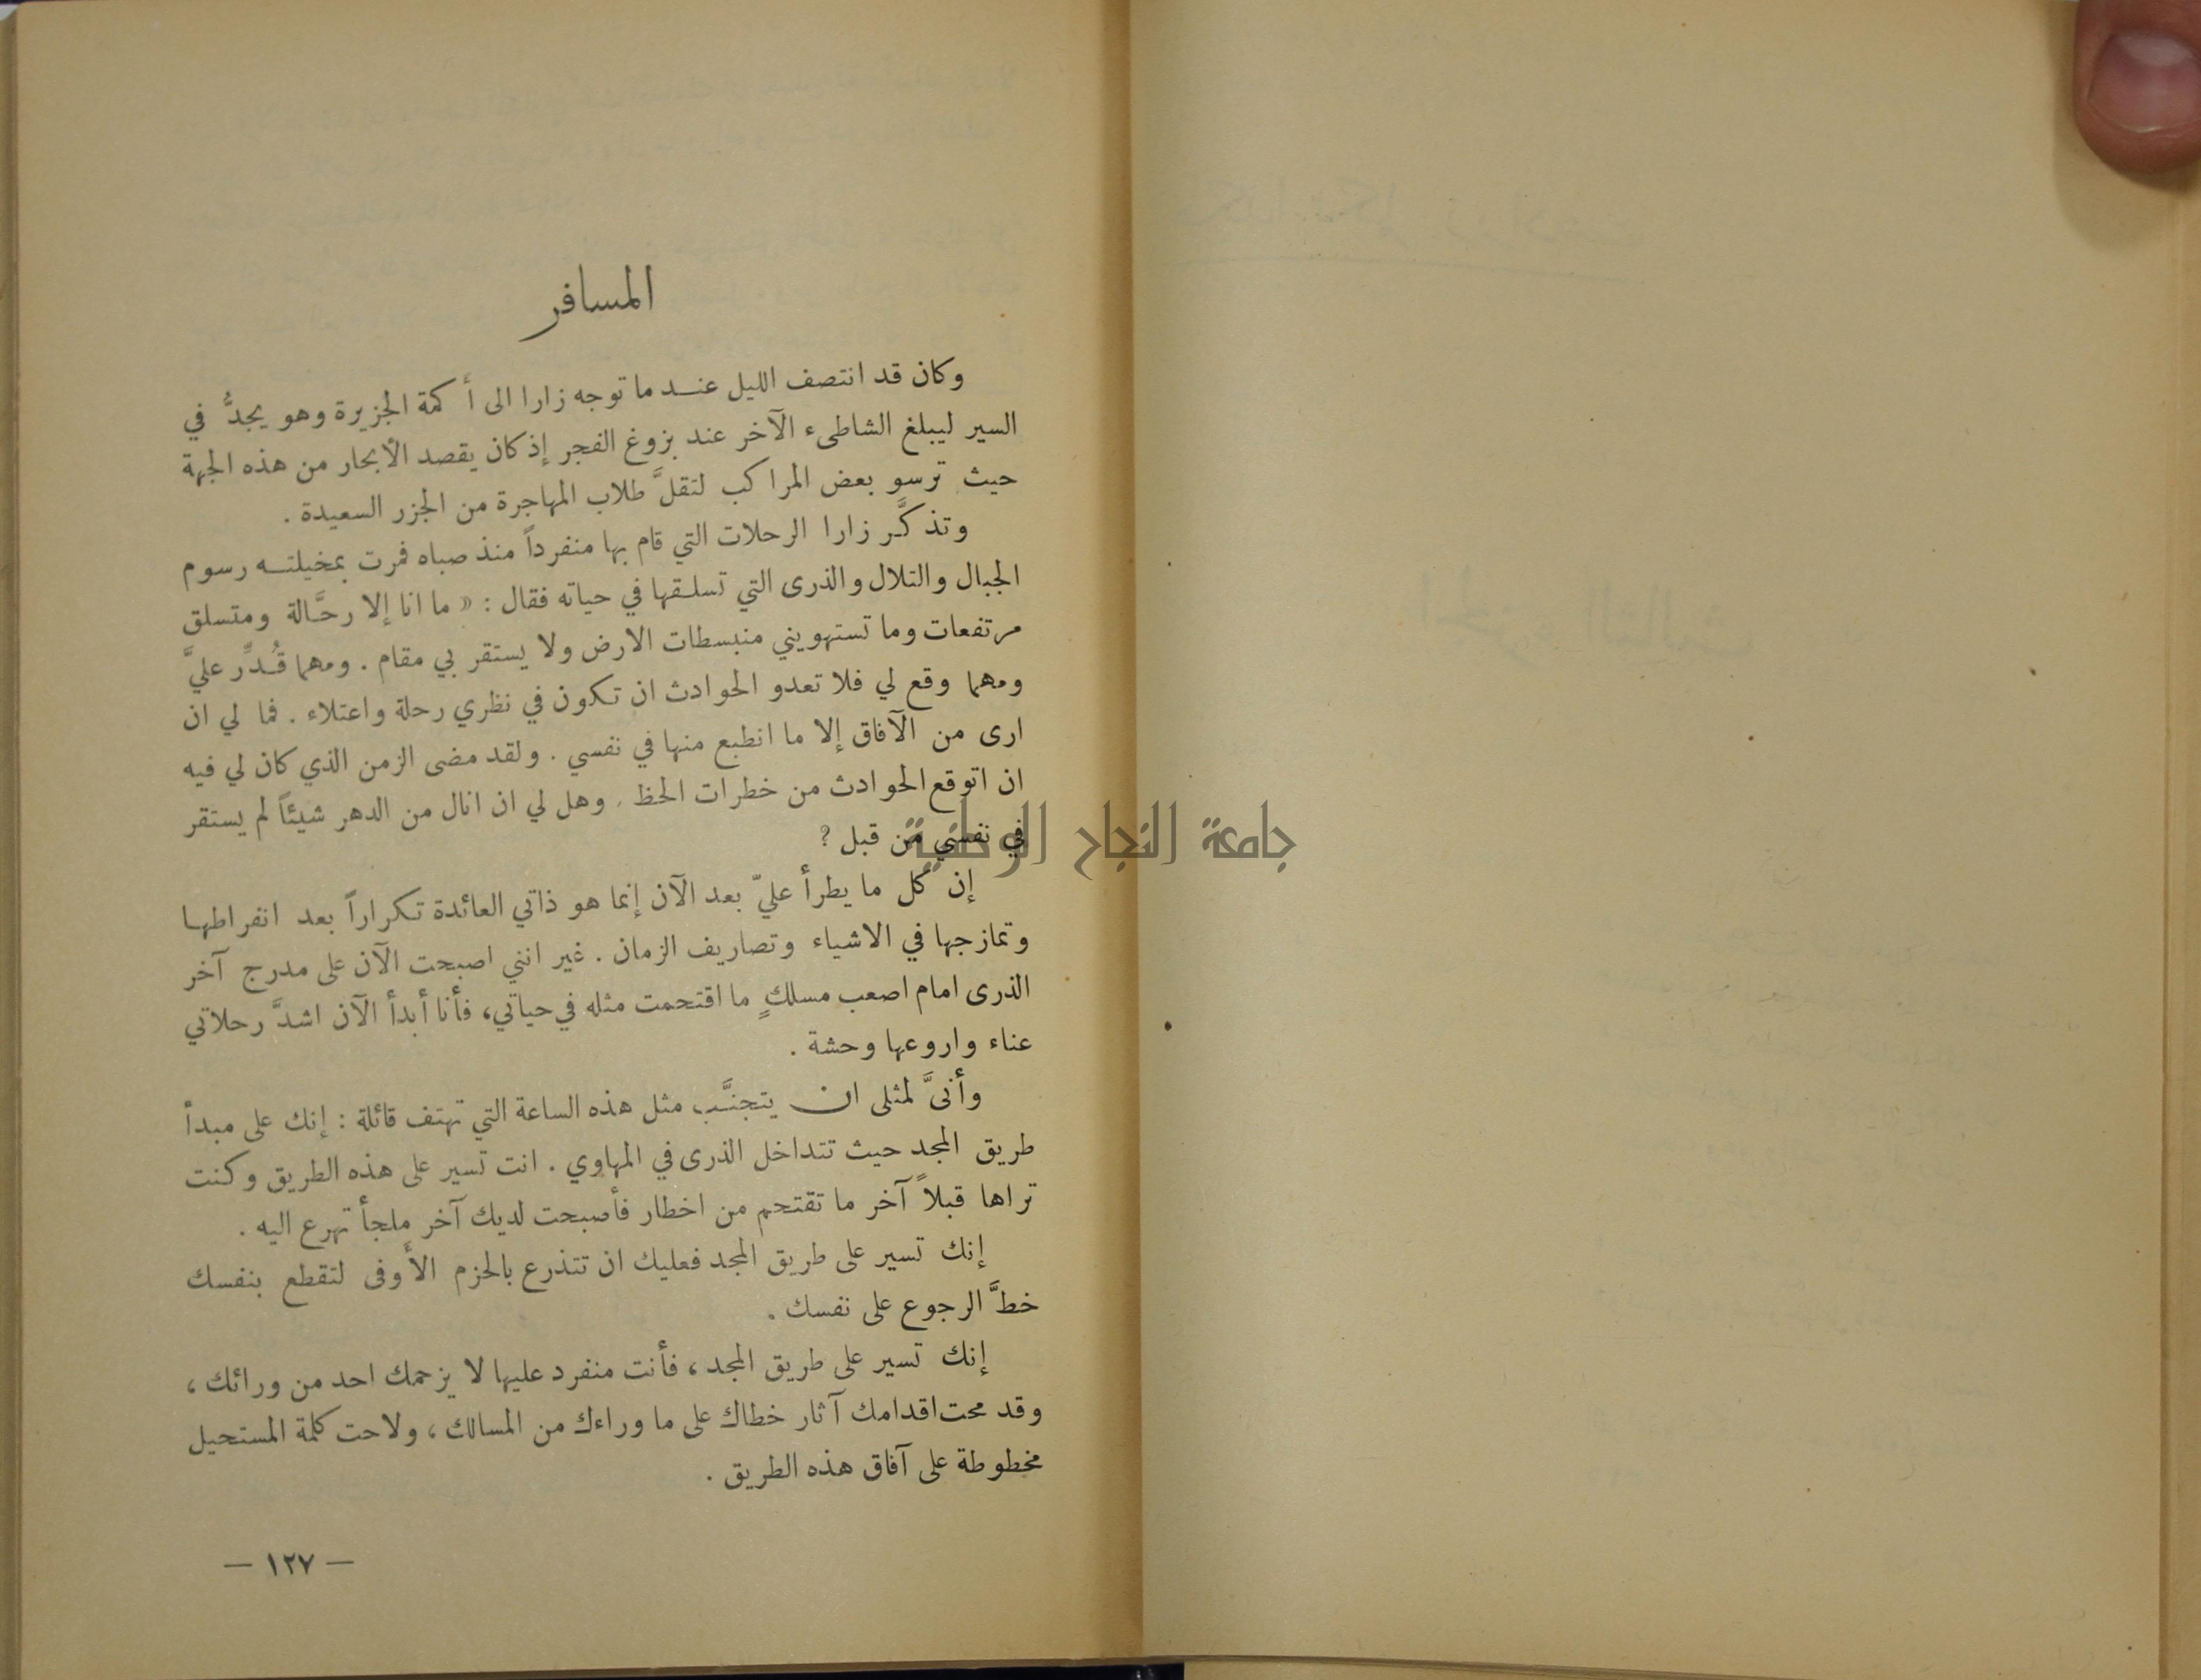 المسافر
وكان قد انتصف الليل عنـد ما توجه زارا الى أكمة الجزيرة وهو يجدُّ في
السير ليبلغ الشاطىء الآخر عند بزوغ الفجر إذ كان يقصد الأبحار من هذه الجهة
حيث ترسو بعض المراكب لتقلَّ طلاب المهاجرة من الجزر السعيدة .
وتذكَّر زارا الرحلات التي قام بها منفرداً منذ صباه فمرت بمخيلتـه رسوم
الجبال والتلال والذرى التي تسلـقها في حياته فقال : « ما انا إلا رحَّـالة ومتسلق
مرتفعات وما تستهويني منبسطات الارض ولا يستقر بي مقام . ومهما قُـدِّر عليَّ
ومهما وقع لي فلا تعدو الحوادث ان تكون في نظري رحلة واعتلاء . فما لي ان
ارى من الآفاق إلا ما انطبع منها في نفسي . ولقد مضى الزمن الذي كان لي فيه
ان اتوقع الحوادث من خطرات الحظ . وهل لي ان انال من الدهر شيئاً لم يستقر
في نفسي من قبل ؟
جامعة النجاح الوطنية
إن كل ما يطرأ عليّ بعد الآن إنما هو ذاتي العائدة تكراراً بعد انفراطهـا
وتمازجها في الاشياء وتصاريف الزمان . غير انني اصبحت الآن على مدرج آخر
الذرى امام اصعب مسلكٍ ما اقتحمت مثله في حياتي، فأنا أبدأ الآن اشدَّ رحلاتي
عناء واروعها وحشة .
وأنىَّ لمثلي ان يتجنَّـب مثل هذه الساعة التي تهتف قائلة : إنك على مبدأ
طريق المجد حيث تتداخل الذرى في المهاوي . انت تسير على هذه الطريق وكنت
تراها قبلاً آخر ما تقتحم من اخطار فأصبحت لديك آخر ملجأ تهرع اليه .
إنك تسير على طريق المجد فعليك ان تتذرع بالحزم الأوفى لتقطع بنفسك
خطَّ الرجوع على نفسك .
إنك تسير على طريق المجد ، فأنت منفرد عليها لا يزحمك احد من ورائك ،
وقد محت اقدامك آثار خطاك على ما وراءك من المسالك ، ولاحت كلمة المستحيل
مخطوطة على آفاق هذه الطريق .
— ١٢٧ —